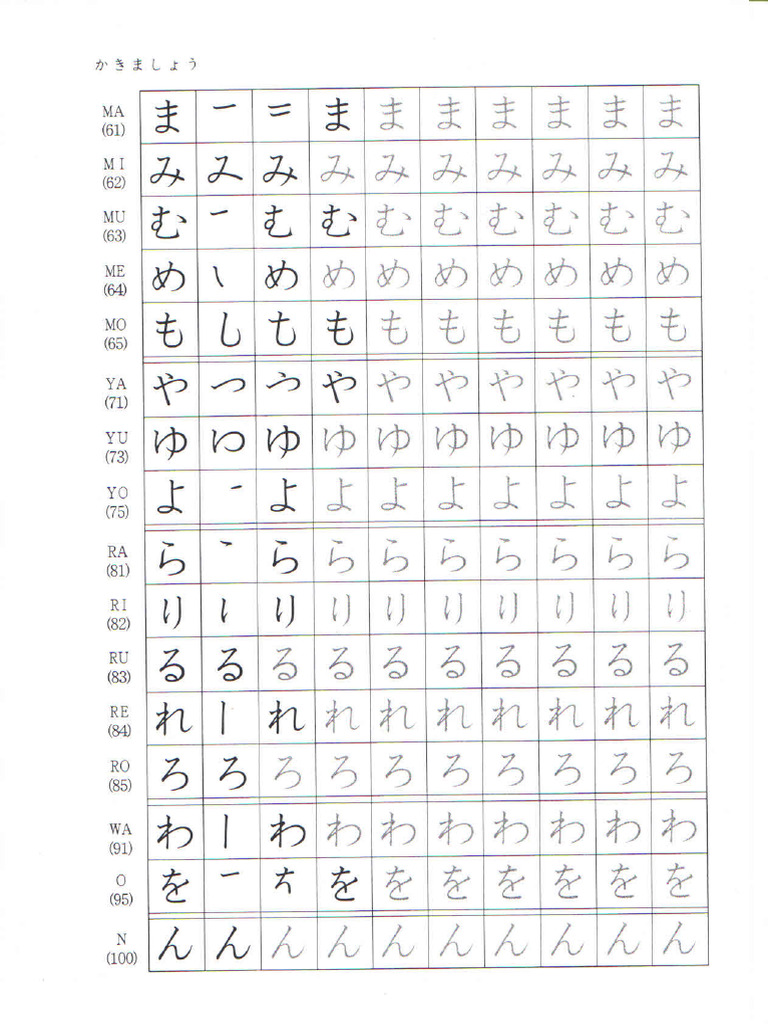 かきましょう
MA ま 一 二 ま ま ま ま ま ま ま
(61)
MI み み み み み み み み み み
(62)
MU む 一 む む む む む む む む
(63)
ME め ㇔ め め め め め め め め
(64)
MO も し も も も も も も も も
(65)
YA や つ や や や や や や や
(71)
YU ゆ ゆ ゆ ゆ ゆ ゆ ゆ ゆ ゆ
(73)
YO よ 一 よ よ よ よ よ よ よ よ
(75)
RA ら ㇔ ら ら ら ら ら ら ら ら
(81)
RI り り り り り り り り り
(82)
RU る る る る る る る る る る
(83)
RE れ 丨 れ れ れ れ れ れ れ れ
(84)
RO ろ ろ ろ ろ ろ ろ ろ ろ ろ ろ
(85)
WA わ 丨 わ わ わ わ わ わ わ わ
(91)
O を 一 を を を を を を を
(95)
N ん ん ん ん ん ん ん ん ん ん
(100)